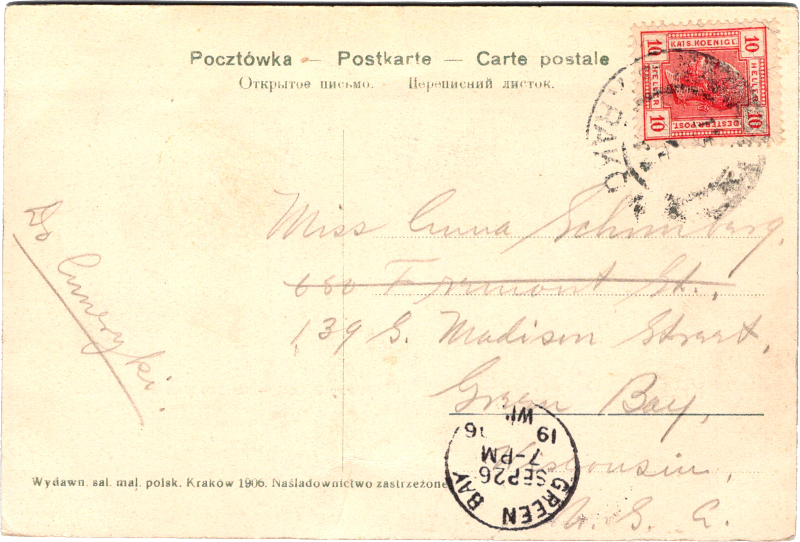 Pocztówka — Postkarte — Carte postale
Открытое письмо. — Цереписний листок.
10 KAIS. KOENIGL. 10
HELLER HELLER
10 OESTERR. POST. 10
KRAKÓ
Miss Anna Schomberg,
680 Fremont St.,
139 S. Madison Street,
Green Bay,
Wisconsin,
U. S. A.
Do Ameryki.
GREEN BAY
SEP 26
7-PM
19 06
WI
Wydawn. sal. mal. polsk. Kraków 1906. Naśladownictwo zastrzeżone